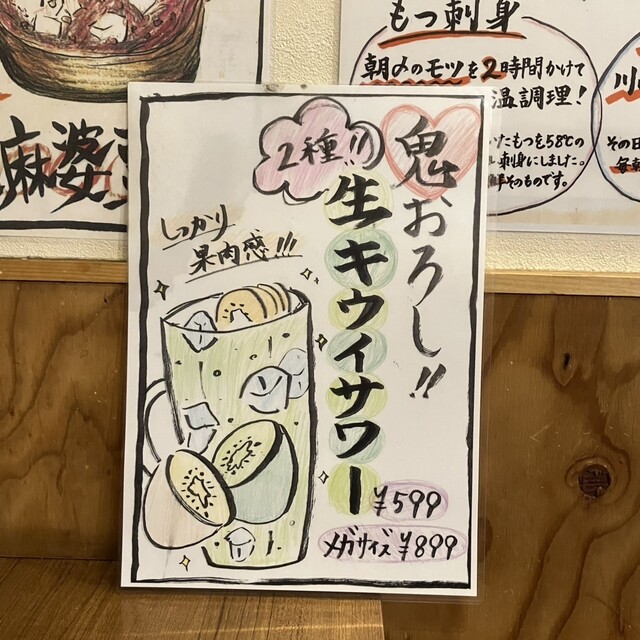 鬼おろし!!
2種!!
生キウイサワー
しっかり
果肉感!!!
¥599
メガサイズ ¥899
もつ刺身
朝〆のモツを2時間かけて
温調理!
たもつを58℃
刺身にしました。
そのものです。
麻婆
川
その日
毎朝